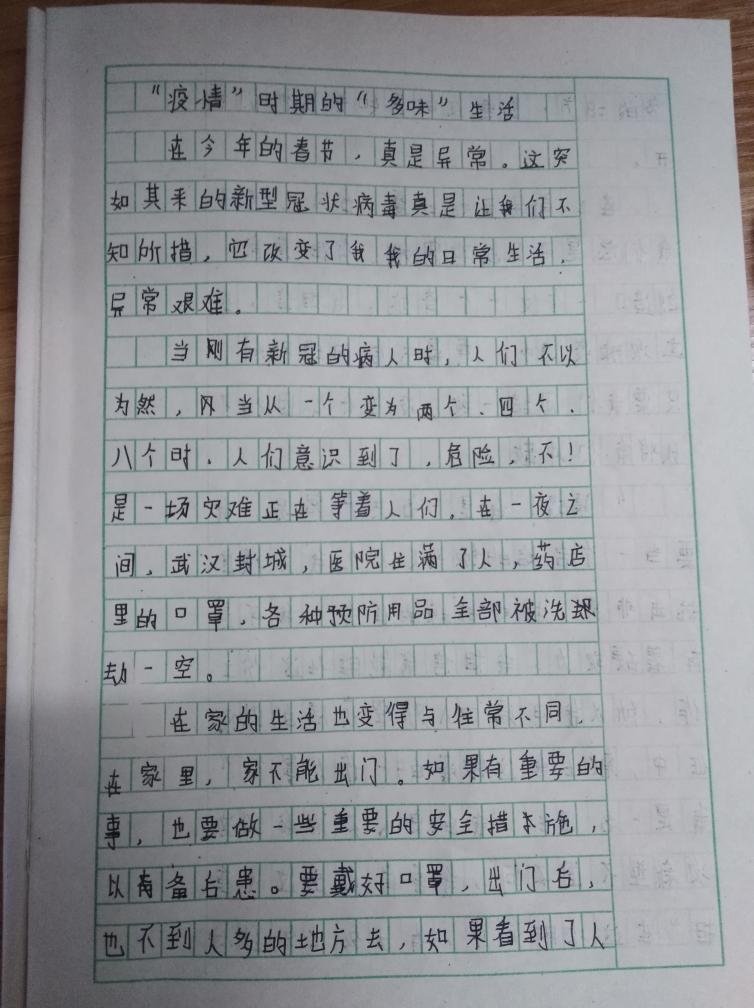 “疫情”时期的“多味”生活
在今年的春节，真是异常。这突
如其来的新型冠状病毒真是让我们不
知所措，它改变了我我的日常生活，
异常艰难。
当刚有新冠的病人时，人们不以
为然，但当从一个变为两个、四个、
八个时，人们意识到了，危险，不！
是一场灾难正在等着人们。在一夜之
间，武汉封城，医院住满了人，药店
里的口罩，各种预防用品全部被洗
劫一空。
在家的生活也变得与往常不同，
在家里，家不能出门。如果有重要的
事，也要做一些重要的安全措施，
以有备后患。要戴好口罩，出门后，
也不到人多的地方去，如果看到了人